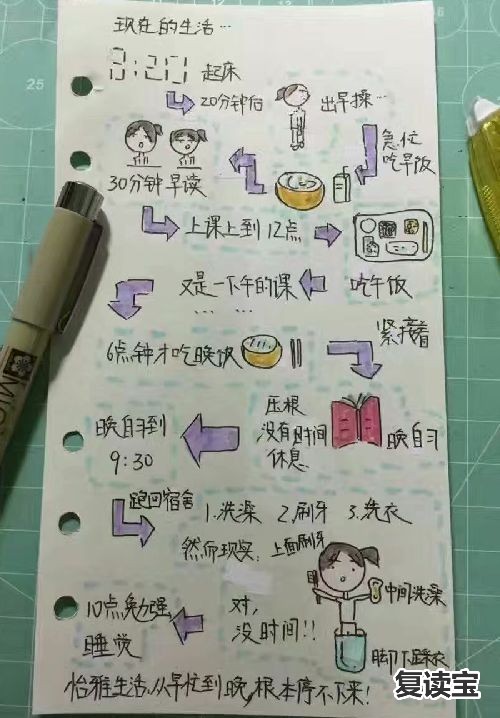 现在的生活…
8:20 起床
20分钟后 出早操…
急忙
吃早饭
30分钟早读
上课上到12点
吃午饭
又是一下午的课
… …
6点钟才吃晚饭
紧接着
晚自习
压根
没有时间
休息.
晚自习到
9:30
跑回宿舍
1.洗澡 2.刷牙 3.洗衣
然而现实:
上面刷牙
中间洗澡
脚下踩衣
对,
没时间!!
10点勉强
睡觉
怡雅生活,从早忙到晚,根本停不下来!
25
复读宝